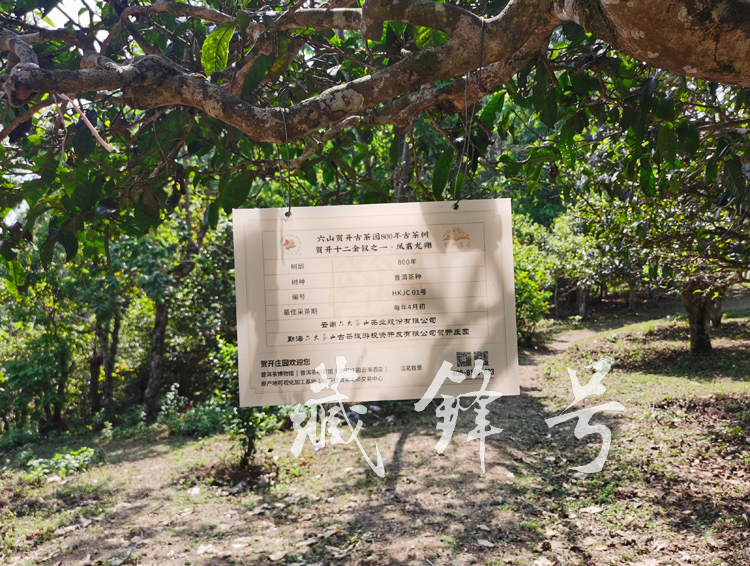 六山贺开古茶园800年古茶树
贺开十二金钗之一·凤翥龙翔
树龄 800年
树种 普洱茶种
编号 HKJC 01号
最佳采茶期 每年4月初
云南六大茶山茶业股份有限公司
勐海六大茶山古茶旅游投资开发有限公司贺开庄园
贺开庄园欢迎您
普洱茶博物馆
原产地可视化加工基地
交易中心
藏锋号